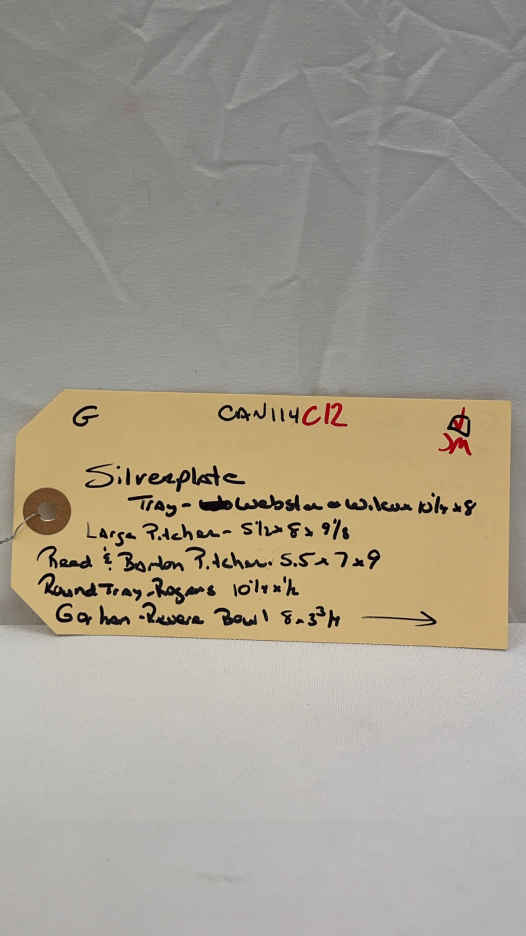 G CAN114C12 JM
Silverplate
Tray - Webster Wilcox 10 1/4 x 8
Large Pitcher - 5 1/2 x 8 x 9 1/8
Reed & Barton Pitcher. 5.5 x 7 x 9
Round Tray - Rogers 10 1/4 x 1/2
Gorham - Revere Bowl 8 x 3 3/4 →